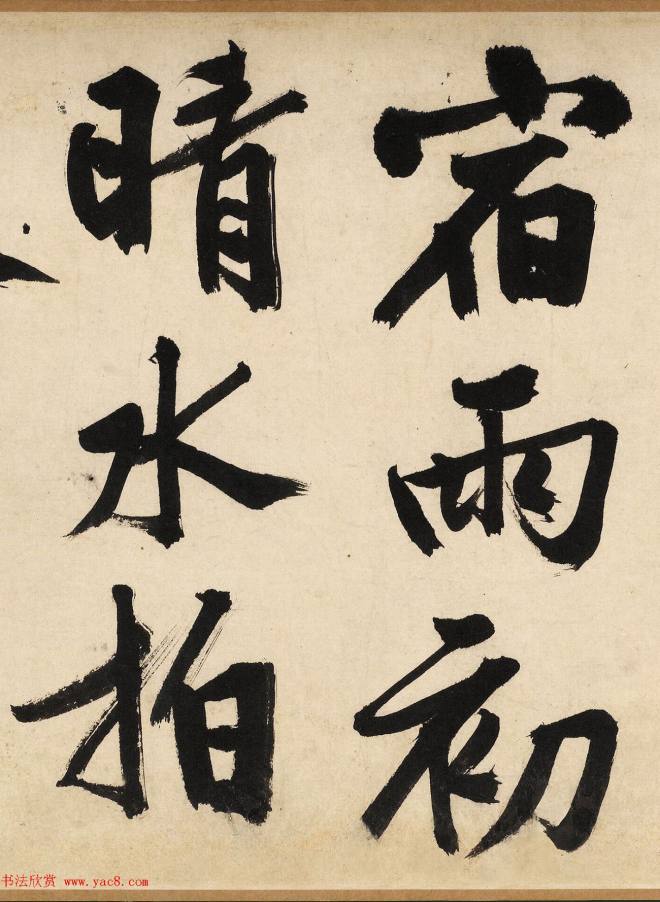 宿雨初
晴水拍
书法欣赏 www.yac8.com